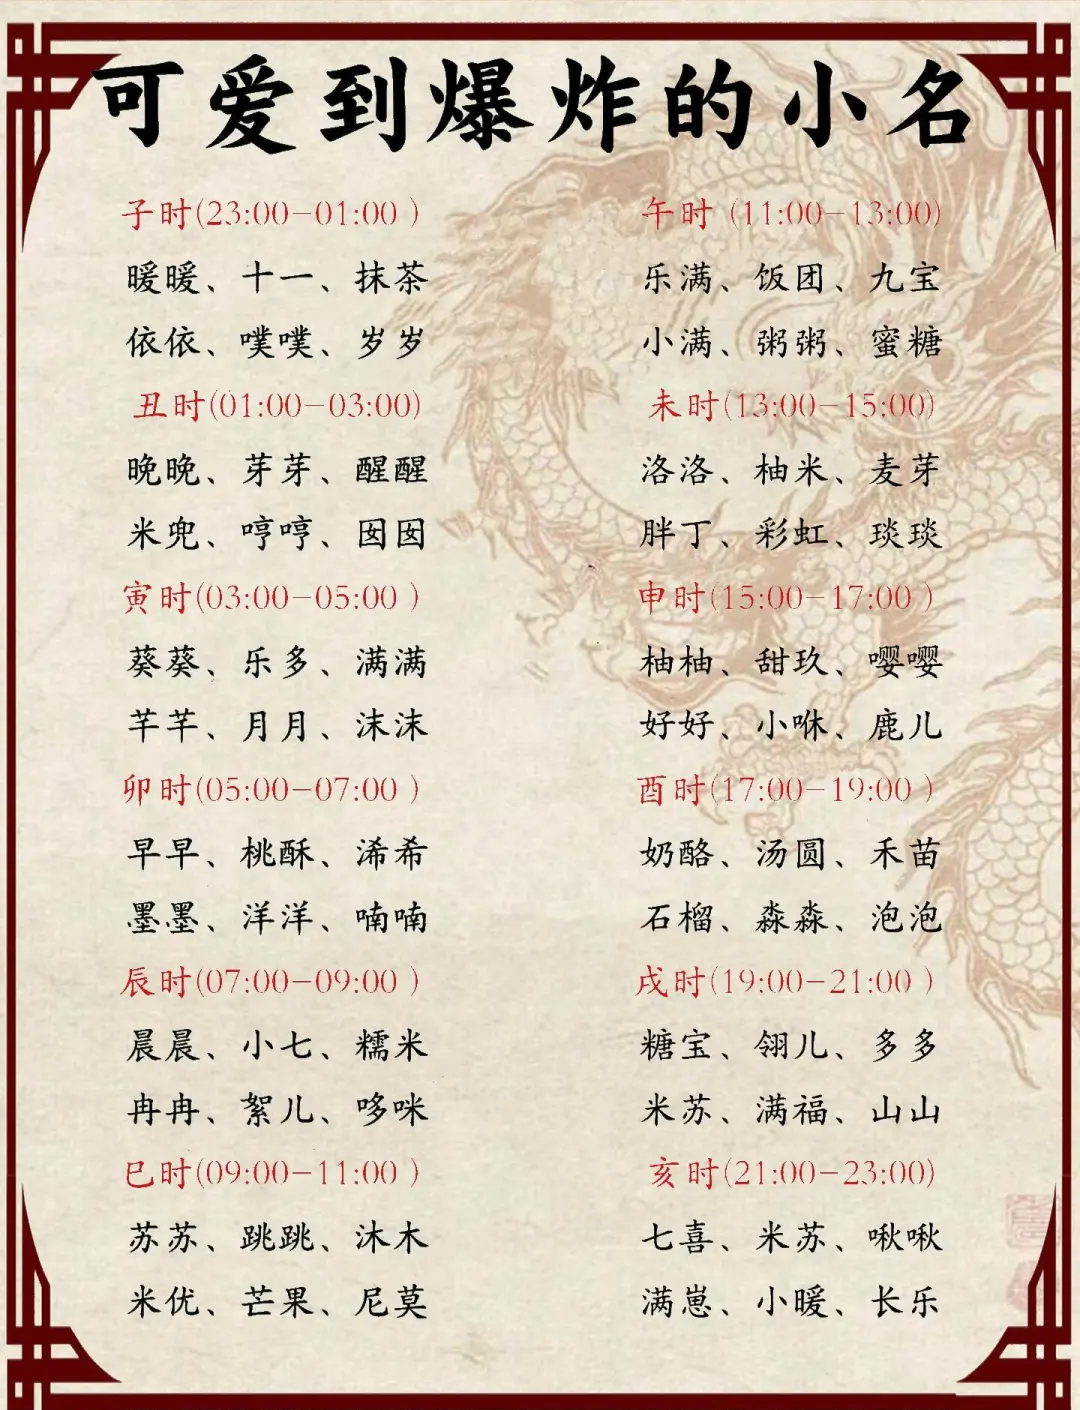 可爱到爆炸的小名
子时(23:00-01:00 )
暖暖、十一、抹茶
依依、噗噗、岁岁
丑时(01:00-03:00)
晚晚、芽芽、醒醒
米兜、哼哼、囡囡
寅时(03:00-05:00 )
葵葵、乐多、满满
芊芊、月月、沫沫
卯时(05:00-07:00 )
早早、桃酥、浠希
墨墨、洋洋、喃喃
辰时(07:00-09:00 )
晨晨、小七、糯米
冉冉、絮儿、哆咪
巳时(09:00-11:00 )
苏苏、跳跳、沐木
米优、芒果、尼莫
午时 (11:00-13:00)
乐满、饭团、九宝
小满、粥粥、蜜糖
未时(13:00-15:00)
洛洛、柚米、麦芽
胖丁、彩虹、琰琰
申时(15:00-17:00 )
柚柚、甜玖、嘤嘤
好好、小咻、鹿儿
酉时(17:00-19:00 )
奶酪、汤圆、禾苗
石榴、淼淼、泡泡
戌时(19:00-21:00 )
糖宝、翎儿、多多
米苏、满福、山山
亥时(21:00-23:00)
七喜、米苏、啾啾
满崽、小暖、长乐